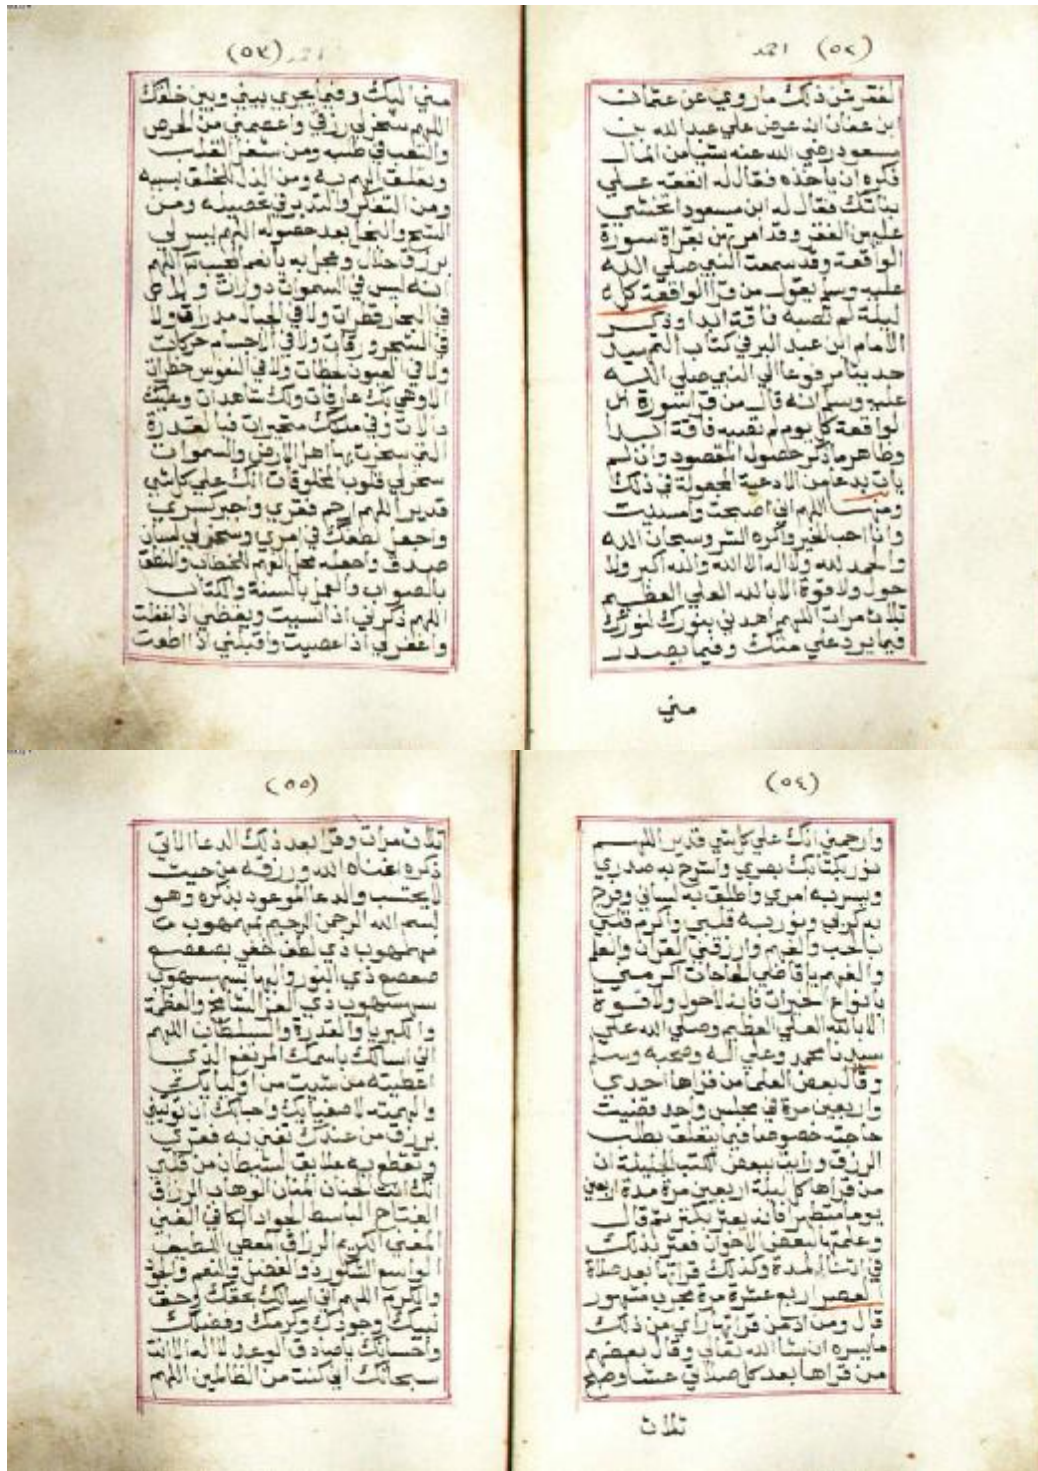 (٥٢) احمد
الفقر فمن ذلك ما روي عن عثمان
ابن عفان انه عرض علي عبد الله بن
مسعود رضي الله عنه شيا من المال
فكره ان ياخذه فقال له انفقه علي
بناتك فقال له ابن مسعود اتخشي
عليهن الفقر وقد امرتهن بقراة سورة
الواقعة وقد سمعت النبي صلي الله
عليه وسلم يقول من قرا الواقعة كل
ليلة لم تصبه فاقة ابدا وذكر
الامام ابن عبد البر في كتاب التمهيد
حديثا مرفوعا الي النبي صلي الله
عليه وسلم انه قال من قرا سورة
الواقعة كل يوم لم تصبه فاقة ابدا
وظاهر ما ذكر حصول المقصود وان لم
يات بدعا من الادعية المجعولة في ذلك
ومنها اللهم اني اصبحت وامسيت
وانا احب الخير واكره الشر وسبحان الله
والحمد لله ولا اله الا الله والله اكبر ولا
حول ولا قوة الا بالله العلي العظيم
ثلاث مرات اللهم اهدني بنورك لنورك
فيما يرد علي منك وفيما يصدر
مني
(٥٣) احمد
مني اليك وفيما يجري بيني وبين خلقك
اللهم سخر لي رزقي واعصمني من الحرص
والتعب في طلبه ومن شغل القلب
وتعلق الهم به ومن الذل للخلق بسببه
ومن التفكر والتدبر في تحصيله ومن
الشح والبخل بعد حصوله اللهم يسر لي
برزق حلال وعجل به يا نعم المجيب اللهم
انه ليس في السموات دورات ولا
في البحار قطرات ولا في الجبال مدرات ولا
في الشجر ورقات ولا في الاجسام حركات
ولا في العيون لحظات ولا في النفوس خطرات
الا وهي بك عارفات ولك شاهدات وعليك
دالات وفي ملكك متحيرات فبالقدرة
التي سخرت بها اهل الارض والسموات
سخر لي قلوب المخلوقات انك علي كل شي
قدير اللهم ارحم فقري واجبر كسري
واجعل لطفك في امري وسخر لي لسان
صدق واجعله محل الفهم للخطاب والنطق
بالصواب والعمل بالسنة والكتاب
اللهم ذكرني اذا نسيت ويقظني اذا غفلت
واغفر لي اذا عصيت واقبلني اذا اطعت
(٥٤)
وارحمني انك علي كل شي قدير اللهم
نور بكتابك بصري واشرح به صدري
ويسر به امري واطلق به لساني وفرج
به كربي ونور به قلبي واكرم قلبي
بالحب والفهم وارزقني القران والعلم
والفهم يا قاضي الحاجات اكرمني
بانواع الخيرات فانه لا حول ولا قوة
الا بالله العلي العظيم وصلي الله علي
سيدنا محمد وعلي اله وصحبه وسلم
وقال بعض العلما من قراها احدي
واربعين مرة في مجلس واحد قضيت
حاجته خصوصا فيما يتعلق بطلب
الرزق ورايت ببعض الكتب الجليلة ان
من قراها كل ليلة اربعين مرة مدة اربعين
يوما متطهرا فانه يعثر بكنز ثم قال
وعلمتها لبعض الاخوان فعثر بذلك
في اثنا المدة وكذلك قراتها بعد صلاة
العصر اربع عشرة مرة مجرب مشهور
قال ومن ادمن قراتها راي من ذلك
ما يسره ان شا الله تعالي وقال بعضهم
من قراها بعد كل صلاتي عشا وصبح
ثلاث
(٥٥)
ثلاث مرات وقرا بعد ذلك الدعا الاتي
ذكره اغناه الله ورزقه من حيث
لا يحتسب والدعا الموعود بذكره وهو
بسم الله الرحمن الرحيم
مهمهوب ذي لطف خفي بصعصع
صعصع ذي النور والبها بسهسهوب
سهسهوب ذي العز الشامخ والعظمة
والكبريا والقدرة والسلطان اللهم
اني اسالك باسمك المرتفع الذي
اعطيته من شيت من اوليايك
والهمته لاصفيايك واحبابك ان توتيني
برزق من عندك تغني به فقري
وتقطع به علايق الشيطان من قلبي
انك انت الحنان المنان الوهاب الرزاق
الفتاح الباسط الجواد الكافي الغني
المغني الكريم الرزاق المعطي اللطيف
الواسع الشكور ذو الفضل والنعم والجود
والكرم اللهم اني اسالك بحقك وحق
نبيك وجودك وكرمك وفضلك
واحسانك يا صادق الوعد لا اله الا انت
سبحانك اني كنت من الظالمين اللهم